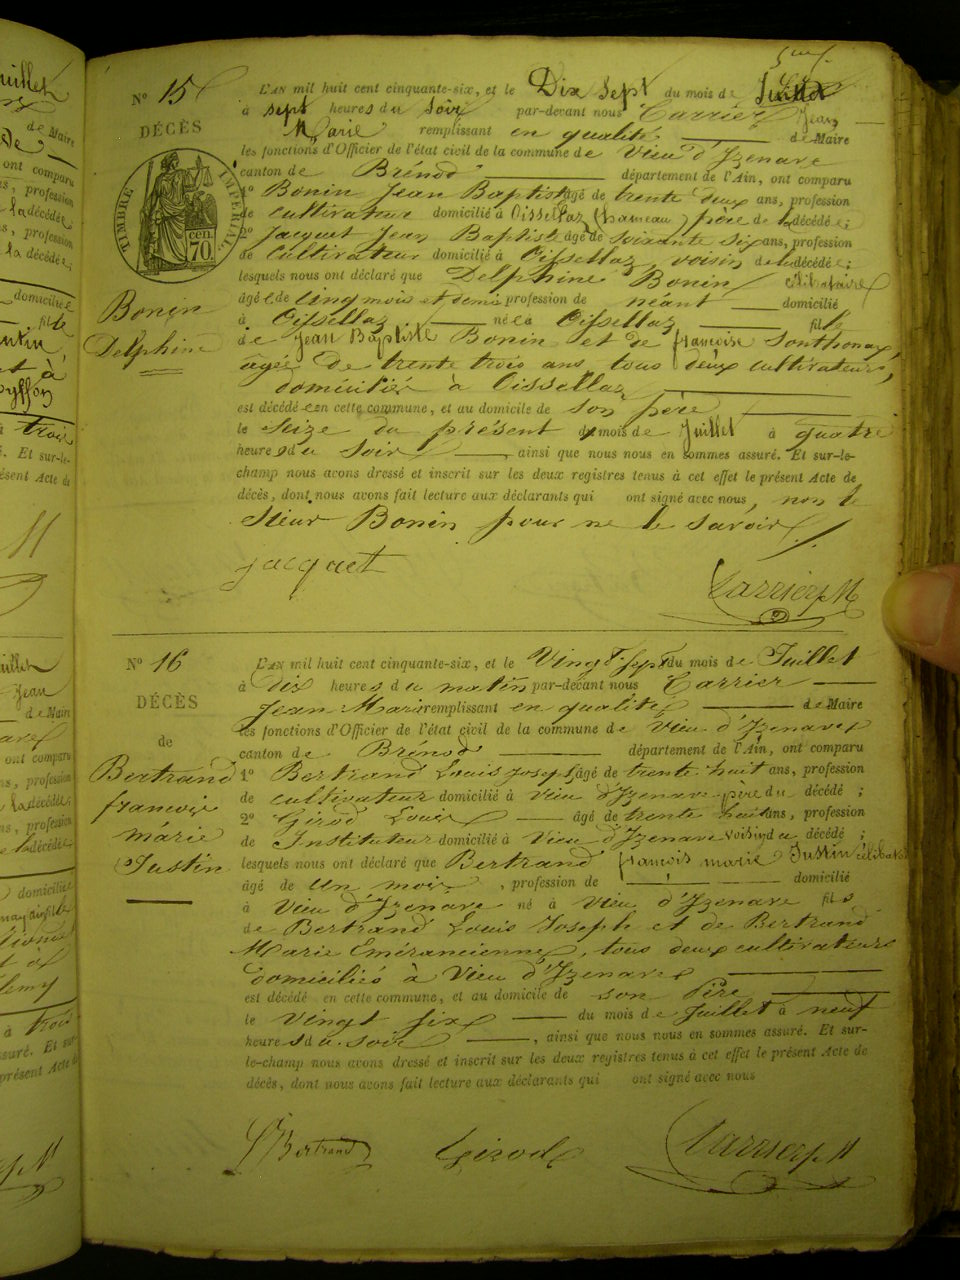 5me f.
N° 15
DÉCÈS
TIMBRE IMPÉRIAL
cen.
70.
Bonin
Delphine
L'AN mil huit cent cinquante-six, et le Dix Sept du mois de Juillet
à sept heures du Soir par-devant nous Carrier Jean
Marie remplissant en qualité de Maire
les fonctions d'Officier de l'état civil de la commune de Vieu d'Izenave
canton de Brénod département de l'Ain, ont comparu
1° Bonin Jean Baptiste âgé de trente deux ans, profession
de cultivateur domicilié à Oissellaz (hameau) père de la décédée;
2° Jacquet Jean Baptiste âgé de soixante six ans, profession
de Cultivateur domicilié à Oissellaz, voisin de la décédée;
lesquels nous ont déclaré que Delphine Bonin célibataire
âgée de cinq mois et demi profession de néant domicilié
à Oissellaz née à Oissellaz fille
de Jean Baptiste Bonin et de françoise Sonthonax,
agée de trente trois ans tous deux cultivateurs,
domiciliés à Oissellaz
est décédée en cette commune, et au domicile de son père
le Seize du présent du mois de Juillet à quatre
heures du Soir ainsi que nous nous en sommes assuré. Et sur-le-
champ nous avons dressé et inscrit sur les deux registres tenus à cet effet le présent Acte de
décès, dont nous avons fait lecture aux déclarants qui ont signé avec nous, non le
Sieur Bonin pour ne le savoir
jacquet
Carrier JM
N° 16
DÉCÈS
de
Bertrand
françois
marie
Justin
L'AN mil huit cent cinquante-six, et le Vingt Sept du mois de Juillet
à Dix heures du matin par-devant nous Carrier
Jean Marie remplissant en qualité de Maire
les fonctions d'Officier de l'état civil de la commune de Vieu d'Izenave
canton de Brénod département de l'Ain, ont comparu
1° Bertrand Louis Joseph âgé de trente huit ans, profession
de cultivateur domicilié à Vieu d'Izenave père du décédé ;
2° Girod Louis âgé de trente huit ans, profession
de Instituteur domicilié à Vieu d'Izenave voisin du décédé ;
lesquels nous ont déclaré que Bertrand françois marie Justin célibat.
âgé de un mois, profession de domicilié
à Vieu d'Izenave né à Vieu d'Izenave fils
de Bertrand Louis Joseph et de Bertrand
Marie Emérancienne, tous deux cultivateurs
domiciliés à Vieu d'Izenave
est décédé en cette commune, et au domicile de son Père
le Vingt six du mois de Juillet à neuf
heures du soir, ainsi que nous nous en sommes assuré. Et sur-
le-champ nous avons dressé et inscrit sur les deux registres tenus à cet effet le présent Acte de
décès, dont nous avons fait lecture aux déclarants qui ont signé avec nous
Bertrand Girod Carrier JM